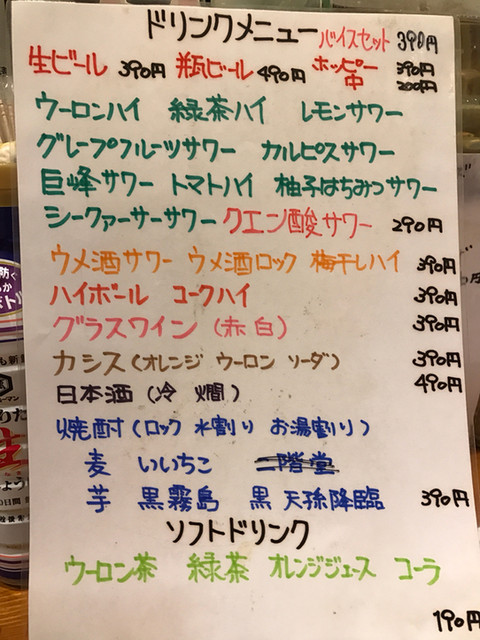 ドリンクメニュー バイスセット 390円
生ビール 390円 瓶ビール 490円 ホッピー 390円
中 200円
ウーロンハイ 緑茶ハイ レモンサワー
グレープフルーツサワー カルピスサワー
巨峰サワー トマトハイ 柚子はちみつサワー
シークァーサーサワー クエン酸サワー 290円
ウメ酒サワー ウメ酒ロック 梅干しハイ 390円
ハイボール コークハイ 390円
グラスワイン (赤 白) 390円
カシス (オレンジ ウーロン ソーダ) 390円
日本酒 (冷 燗) 490円
焼酎 (ロック 水割り お湯割り)
麦 いいちこ 二階堂
芋 黒霧島 黒 天孫降臨 390円
ソフトドリンク
ウーロン茶 緑茶 オレンジジュース コーラ
190円